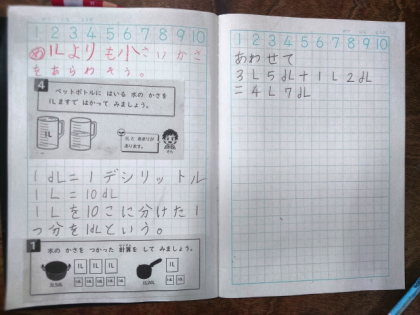 1 2 3 4 5 6 7 8 9 10
め 1Lよりも小さいかさ
をあらわそう。
4
ペットボトルに はいる 水の かさを
1Lますで はかって みましょう。
1L
1L
1Lと あまりが
あります。
1dL=1デシリットル
1L=10dL
1Lを10こに分けた1
つ分を1dLという。
1 水の かさを つかった 計算を して みましょう。
1L 1L 1L
1L
1 2 3 4 5 6 7 8 9 10
あわせて
3L5dL+1L2dL
=4L7dL